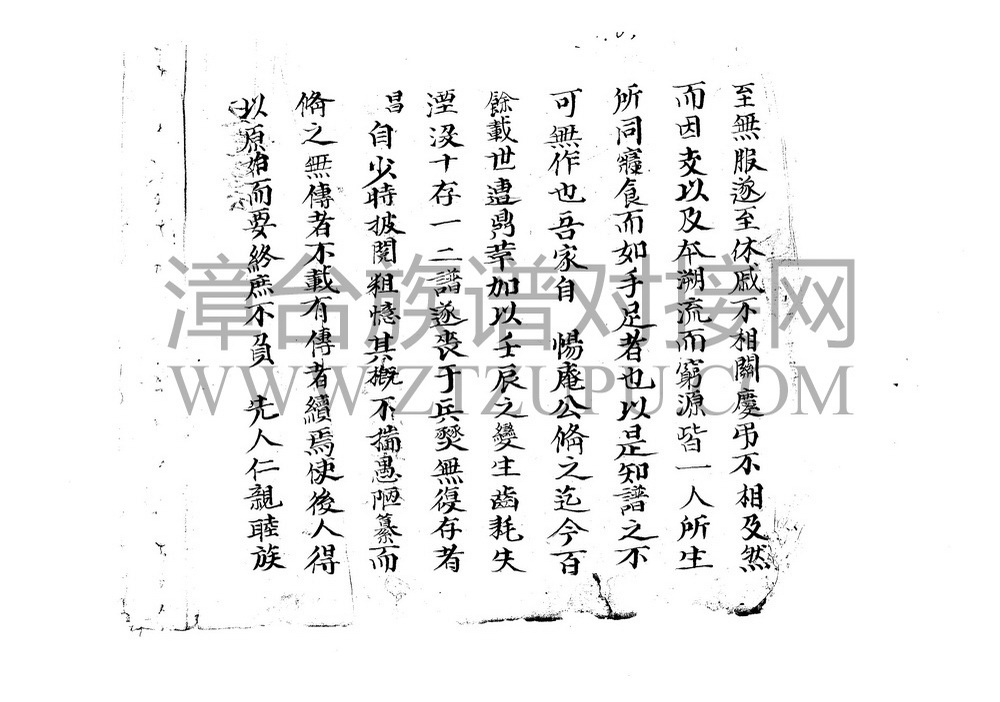 至無服遂至休戚不相關慶弔不相及然
而因支以及本溯流而窮源皆一人所生
所同寢食而如手足者也以是知譜之不
可無作也吾家自 惕庵公脩之迄今百
餘載世遭鼎革加以壬辰之變生齒耗失
湮沒十存一二譜遂喪于兵燹無復存者
昌自少時披閱粗憶其概不揣愚陋纂而
脩之無傳者不載有傳者續焉使後人得
以原始而要終庶不負 先人仁親睦族
漳台族谱对接网
WWW.ZTZUPU.COM